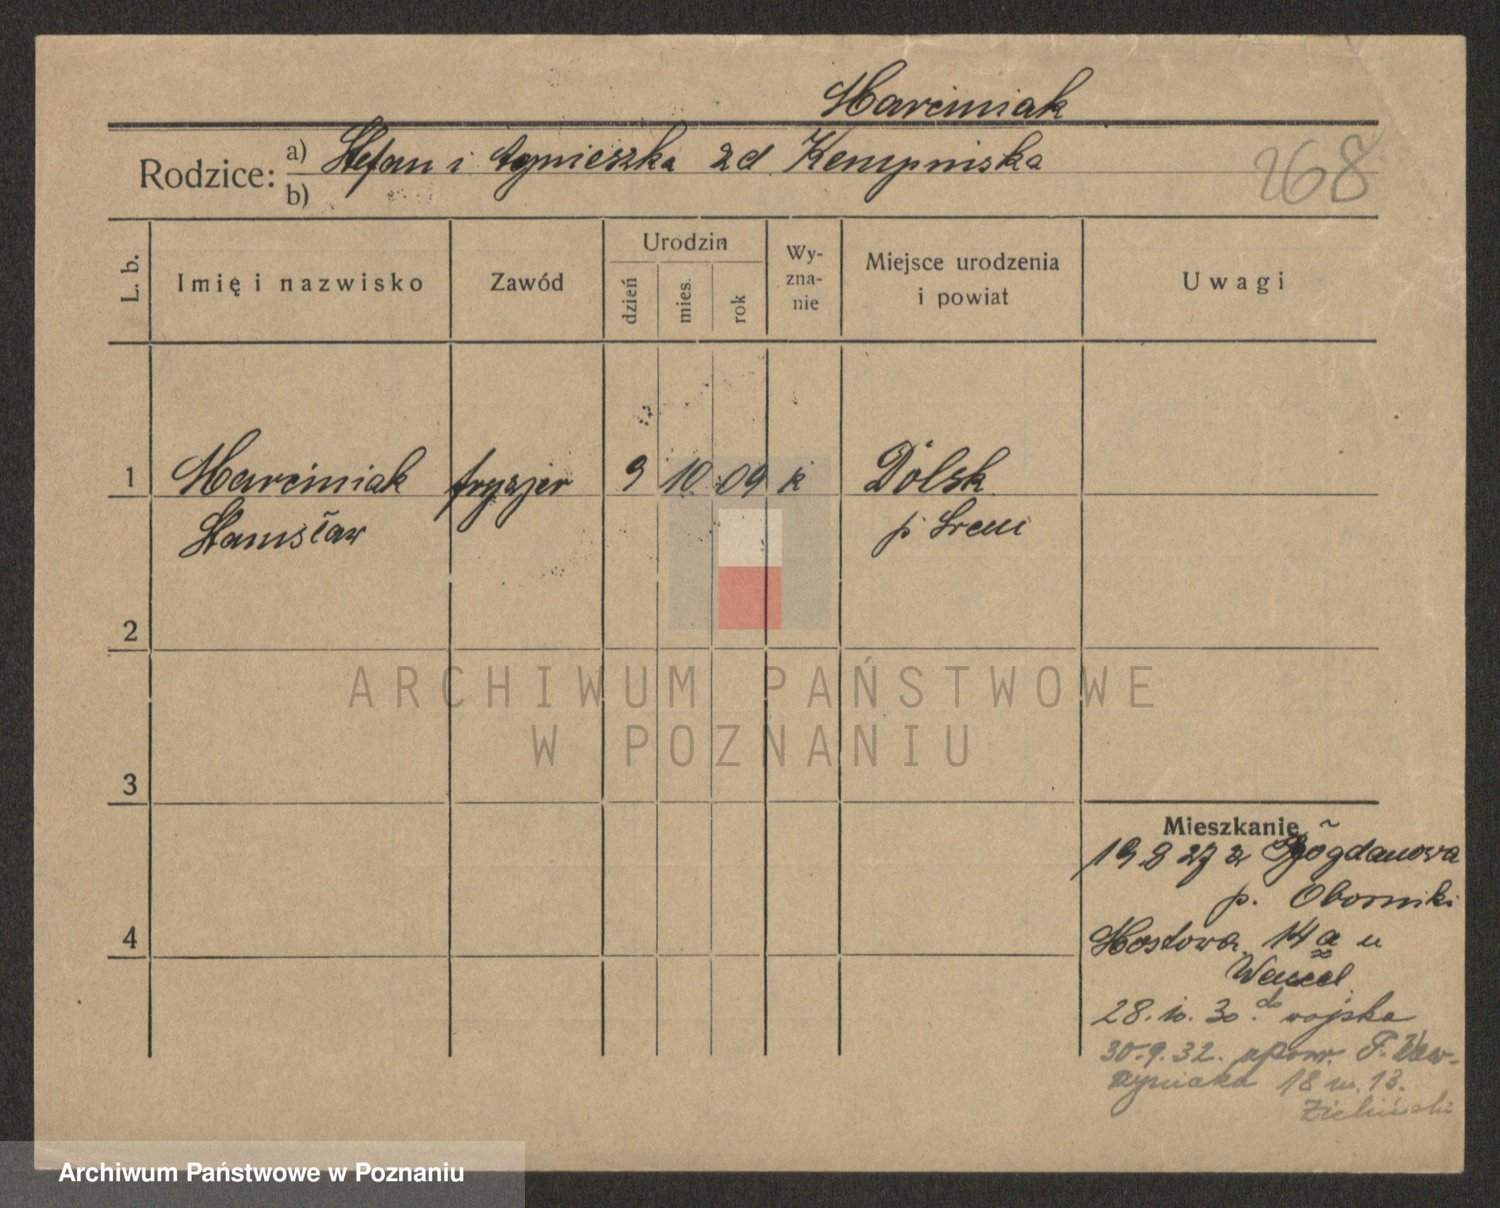 Marciniak
Rodzice: a) Stefan i Agnieszka zd Kempniska
b)
268
L. b.
Imię i nazwisko
Zawód
Urodzin
dzień
mies.
rok
Wy-
zna-
nie
Miejsce urodzenia
i powiat
Uwagi
1 Marciniak fryzjer 9 10 09 k Dolsk
Stanisław p Śrem
2
3
4
Mieszkanie
19.8 27 z Bogdanowa
p. Oborniki
Mostowa 14 a u
Wencel
28.10.30. do wojska
30.9.32. F.
18 m. 13.
Zieliński
ARCHIWUM PAŃSTWOWE
W POZNANIU
Archiwum Państwowe w Poznaniu